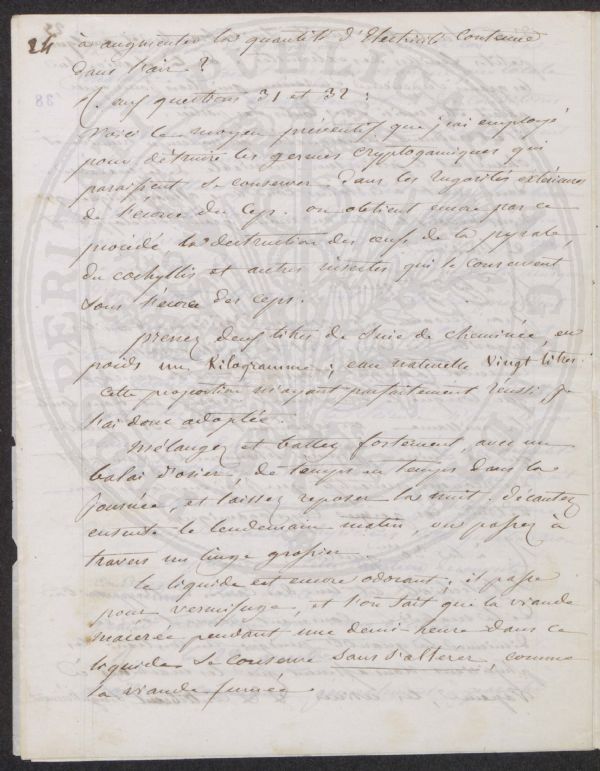 24
à augmenter la quantité d'Electricité contenue
dans l'air ?
R. aux questions 31 et 32 :
Voici le moyen préventif que j'ai employé
pour détruire les germes cryptogamiques qui
paraissent se conserver dans les rugosités extérieures
de l'écorce du cep. on obtient encore par ce
procédé la destruction des œufs de la pyrale,
du cochyllis et autres insectes qui se conservent
sous l'écorce des ceps.
prenez deux litres de Suie de cheminée, en
poids un Kilogramme ; eau naturelle Vingt litres.
Cette proportion m'ayant parfaitement réussi je
l'ai donc adoptée.
Mélangez et battez fortement, avec un
balai d'osier, de temps en temps dans la
journée, et laissez reposer la nuit. Décantez
ensuite le lendemain matin, ou passez à
travers un linge grossier.
Ce liquide est encore odorant ; il passe
pour vermifuge, et l'on sait que la viande
macérée pendant une demi-heure dans ce
liquide se conserve sans s'altérer, comme
la viande fumée.